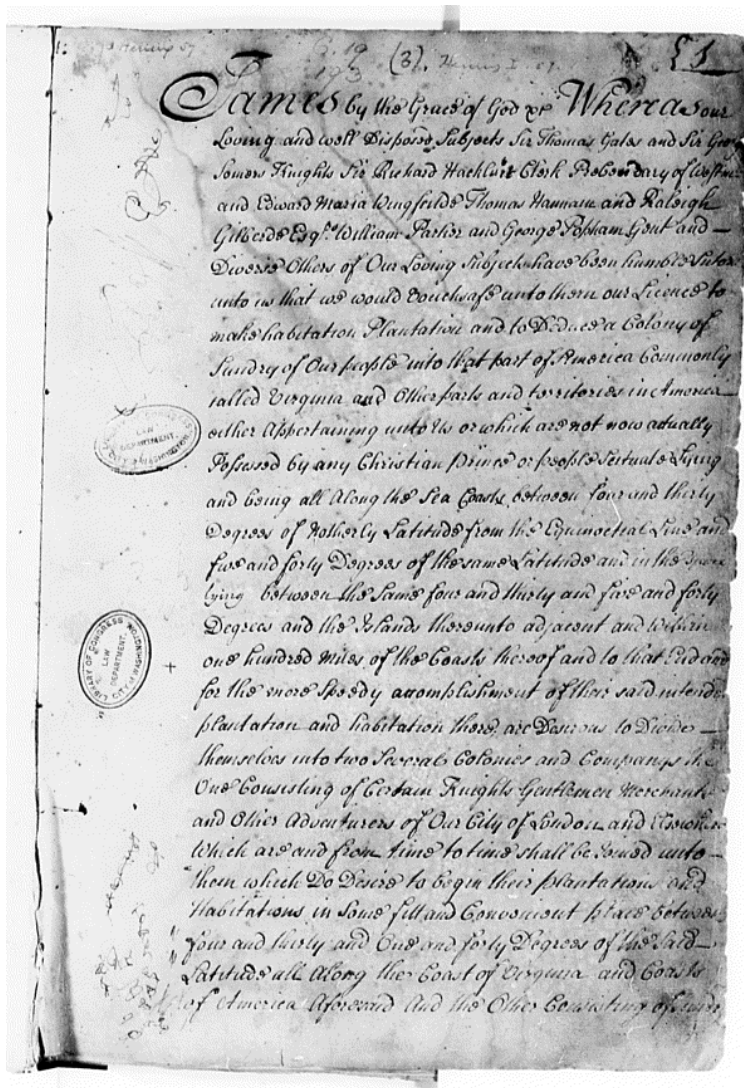 (3).
James by the Grace of God &c Whereas our
Loving and well Disposed Subjects Sir Thomas Gates and Sir
Somers Knights Sir Richard Hackluit Clerk Prebendary of
and Edward Maria Wingfeilde Thomas Hannam and Raleigh
Gilberde Esqrs. William Parker and George Popham Gent and
Diverse Others of Our Loving Subjects have been humble
unto us that we would vouchsafe unto them our Licence to
make habitation Plantation and to Deduce a Colony of
Sundry of Our people into that part of America Commonly
called Virginia and Other parts and territories in America
either Appertaining unto Us or which are not now actually
Possessed by any Christian Prince or people Scituate Lying
and being all Along the Sea Coasts between four and thirty
Degrees of Notherly Latitude from the Equinoctial Line and
five and forty Degrees of the same Latitude and in the
lying between the Same four and thirty and five and forty
Degrees and the Islands thereunto adjacent and within
one hundred miles of the Coasts thereof and to that End and
for the more Speedy accomplishment of their said
plantation and habitation there, are Desirous to Divide
themselves into two Several Colonies and Companys the
One Consisting of Certain Knights Gentlemen Merchants
and Other Adventurers of Our City of London and
Which are and from time to time shall be Joined unto
them which Do Desire to begin their plantations and
Habitations in Some fitt and Convenient place between
four and thirty and One and forty Degrees of the said
Latitude all Along the Coast of Virginia and Coasts
of America Aforesaid And the Other Consisting of
LAW
DEPARTMENT,
LIBRARY OF CONGRESS
LAW
DEPARTMENT,
CITY OF WASHINGTON